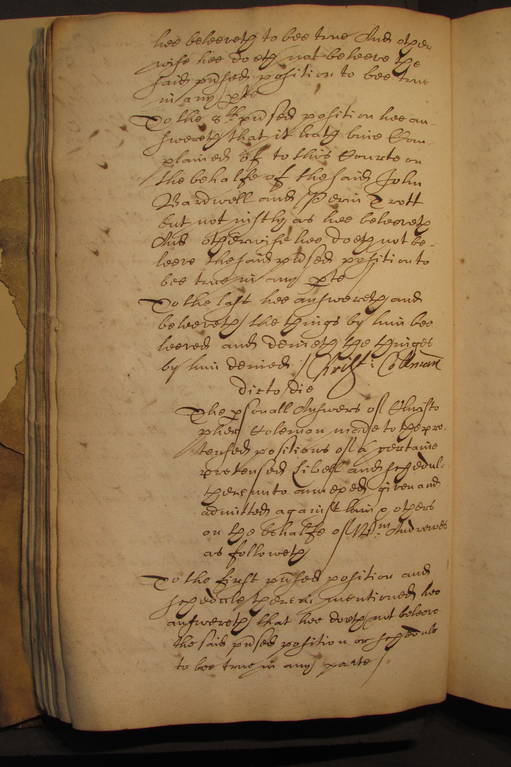 hee beleeveth to bee true And other
wise hee doeth not beleeve the
said pñsed position to bee true
in any pte
To the 8th pñsed position hee an
swereth that it hath bine Com
plained of to this Courte on
the behalfe of the said John
Bardwell and Perin Trott
but not iustly as hee beleeveth
And otherwise hee doeth not be
leeve the said pñsed position to
bee true in any pte
To the last hee answereth and
beleeveth the things by him bee
leeved and denieth the thinges
by him denied / Christ: Collman
dicto die
The psonall Answers of Christo
pher Colemon made to the pre
tensed positions of a certaine
pretensed Libell and schedule
thereunto annexed given and
admitted against him p others
on the behalfe of Wm Andrewes
as followeth
To the first pñsed position and
schedule therein mentioned hee
answereth that hee doeth not beleeve
the said pñsed position or schedule
to bee true in any parte /